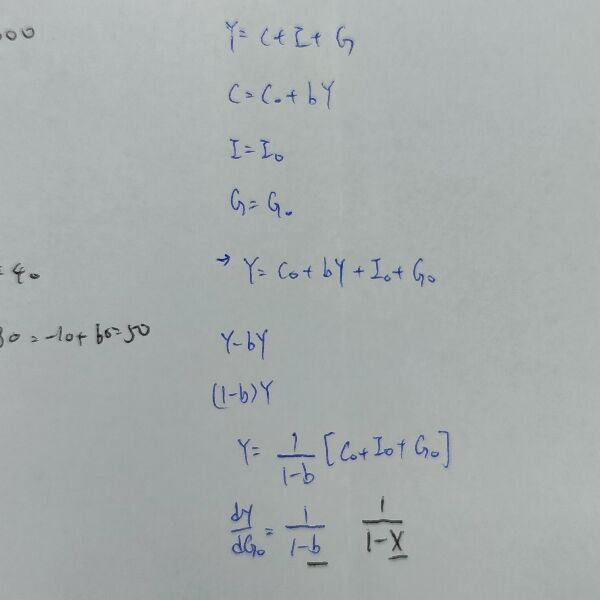 000
Y = C + I + G
C = C₀ + bY
I = I₀
G = G₀
= 40
→ Y = C₀ + bY + I₀ + G₀
30 = -10 + 60 = 50
Y - bY
(1-b)Y
Y = 1/(1-b) [C₀ + I₀ + G₀]
dY/dG₀ = 1/(1-b) 1/(1-X)